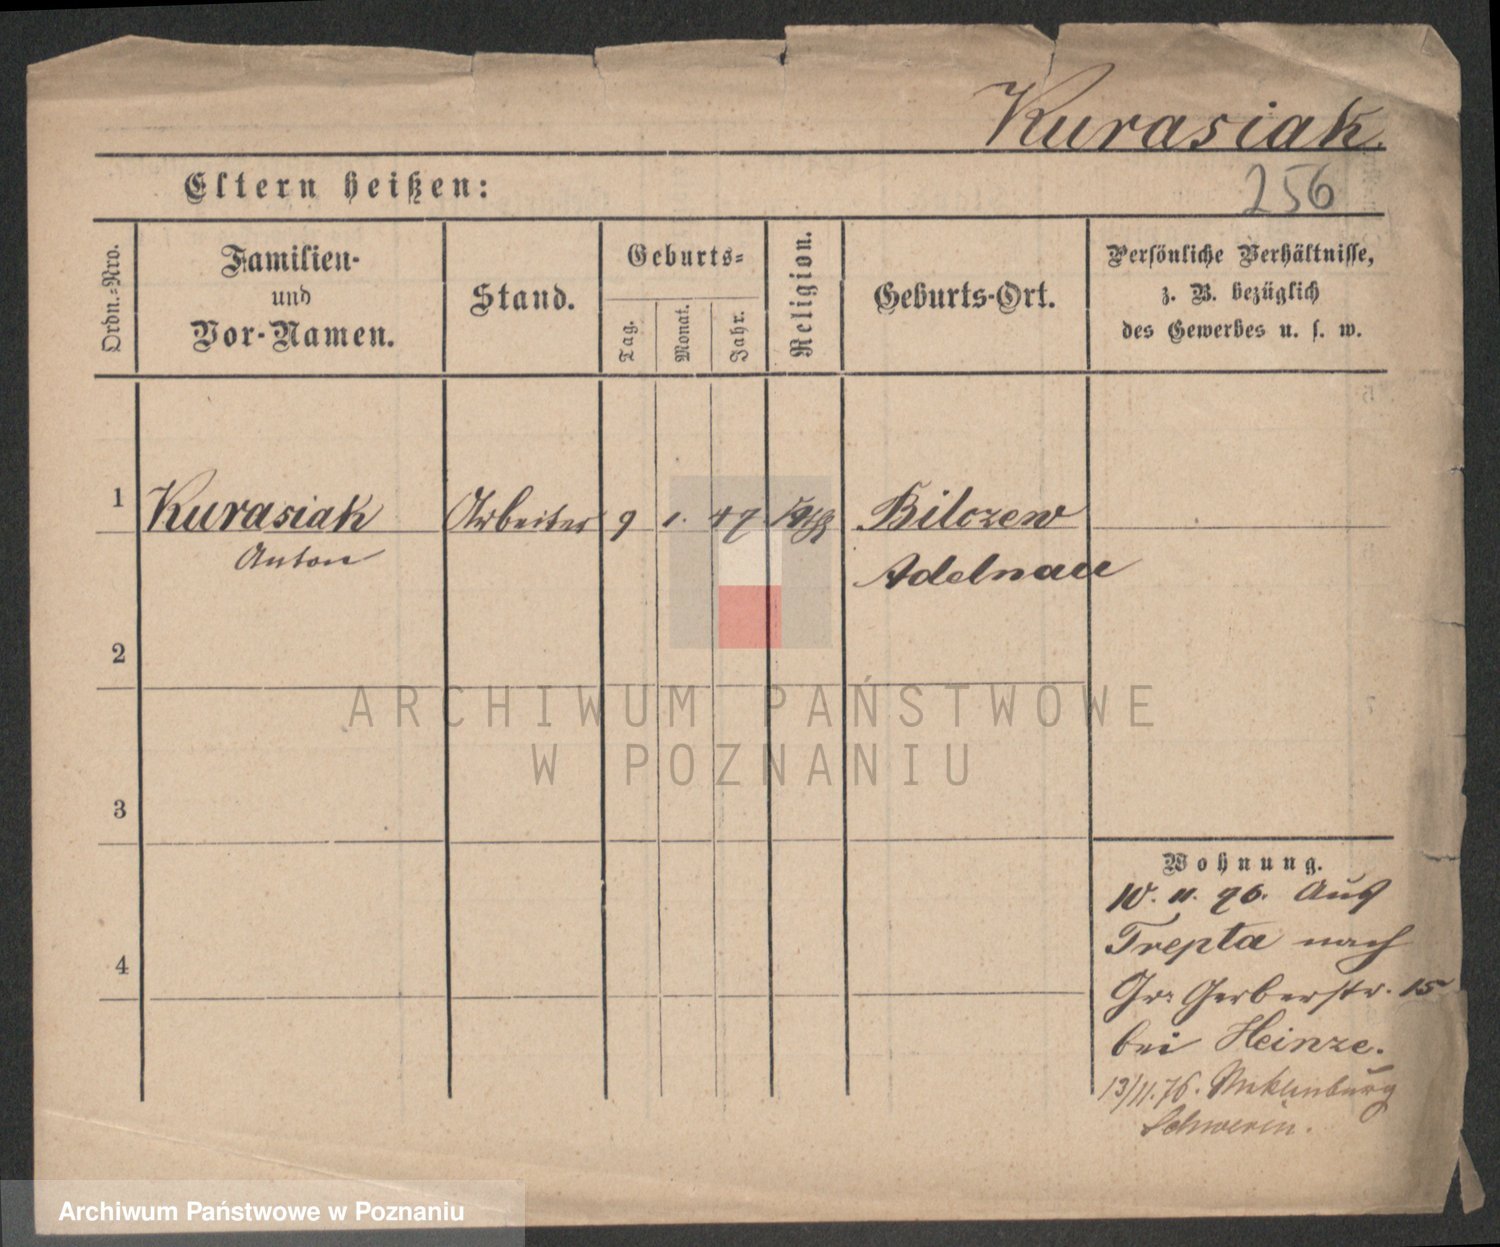 Kurasiak.
Eltern heißen:
256
Ordn.-Nro.
Familien-
und
Vor-Namen.
Stand.
Geburts-
Tag.
Monat.
Jahr.
Religion.
Geburts-Ort.
Persönliche Verhältnisse,
z. B. bezüglich
des Gewerbes u. s. w.
1
Kurasiak Arbeiter 9 1. 47 Bilczew
Anton Adelnau
2
ARCHIWUM PAŃSTWOWE
W POZNANIU
3
Wohnung.
10. 11. 76. Aus
Trepta nach
Gr. Gerberstr. 15
bei Heinze.
13/11.76. Meklenburg
Schwerin.
4
Archiwum Państwowe w Poznaniu